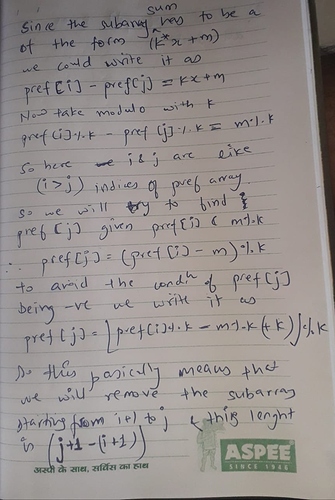 sum
Since the subarray has to be a
of the form (k*x + m)
we could write it as
pref[i] - pref[j] = kx + m
Now take modulo with k
pref[i]%k - pref[j]%k = m%k
So here i & j are like
(i>j) indices of pref array.
so we will try to find
pref[j] given pref[i] & m%k
∴ pref[j] = (pref[i] - m)%k
to avoid the condn of pref[j]
being -ve we write it as
pref[j] = [pref[i]%k - m%k (+k)]%k
So this basically means that
we will remove the subarray
starting from i+1 to j & this lenght
is (j+1 - (i+1))
ASPEE
SINCE 1946
अस्पी के साथ, सर्विस का हाथ